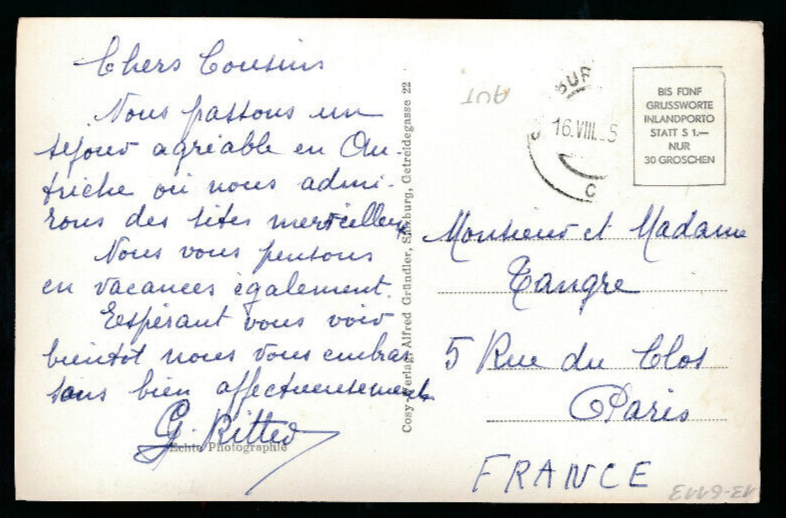 Chers Cousins
Nous passons un
séjour agréable en Au-
triche où nous admi-
rons des sites merveilleux
Nous vous pensons
en vacances également.
Espérant vous voir
bientôt nous vous embras
sons bien affectueusement
G. Ritter
Echte Photographie
Cosy-Verlag, Alfred Gründler, Salzburg, Getreidegasse 22
AUT
BUR
16.VIII. 5
C
BIS FÜNF
GRUSSWORTE
INLANDPORTO
STATT S 1.—
NUR
30 GROSCHEN
Monsieur et Madame
Tangre
5 Rue du Clos
Paris
FRANCE
13-6113